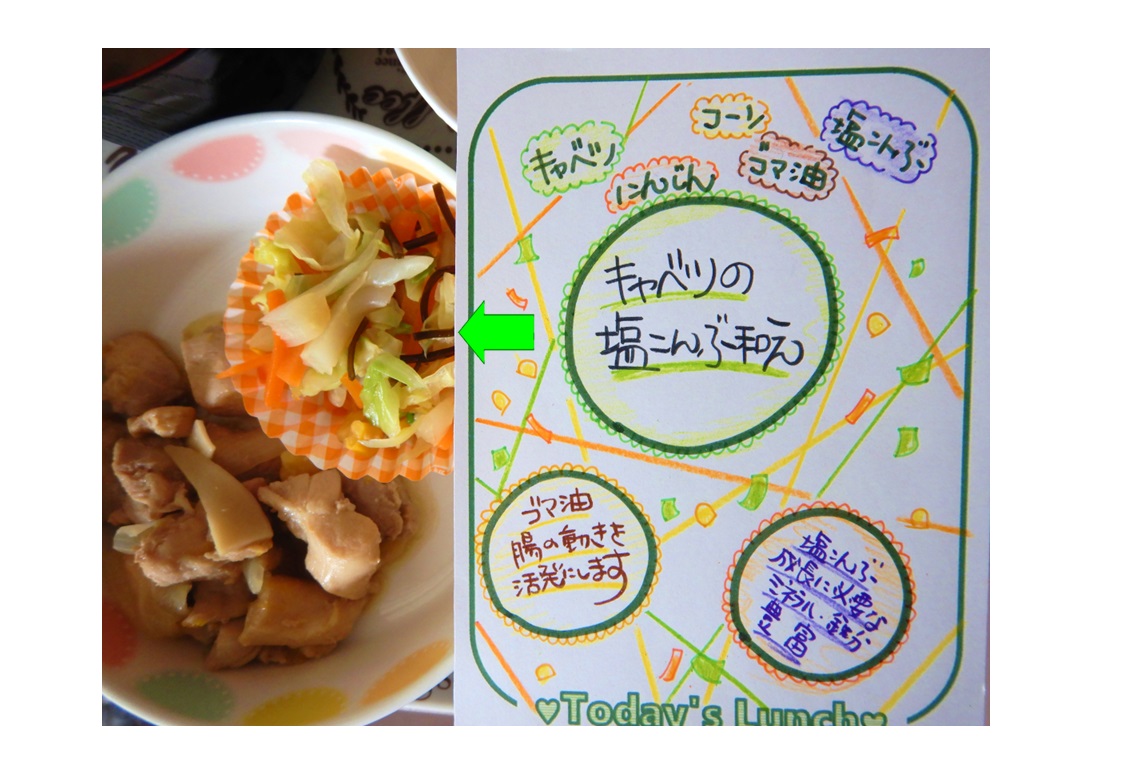 キャベツ
コーン
塩こんぶ
にんじん
ゴマ油
キャベツの
塩こんぶ和え
ゴマ油
腸の動きを
活発にします
塩こんぶ
成長に必要な
ミネラル・鉄分
豊富
♥Today's Lunch♥